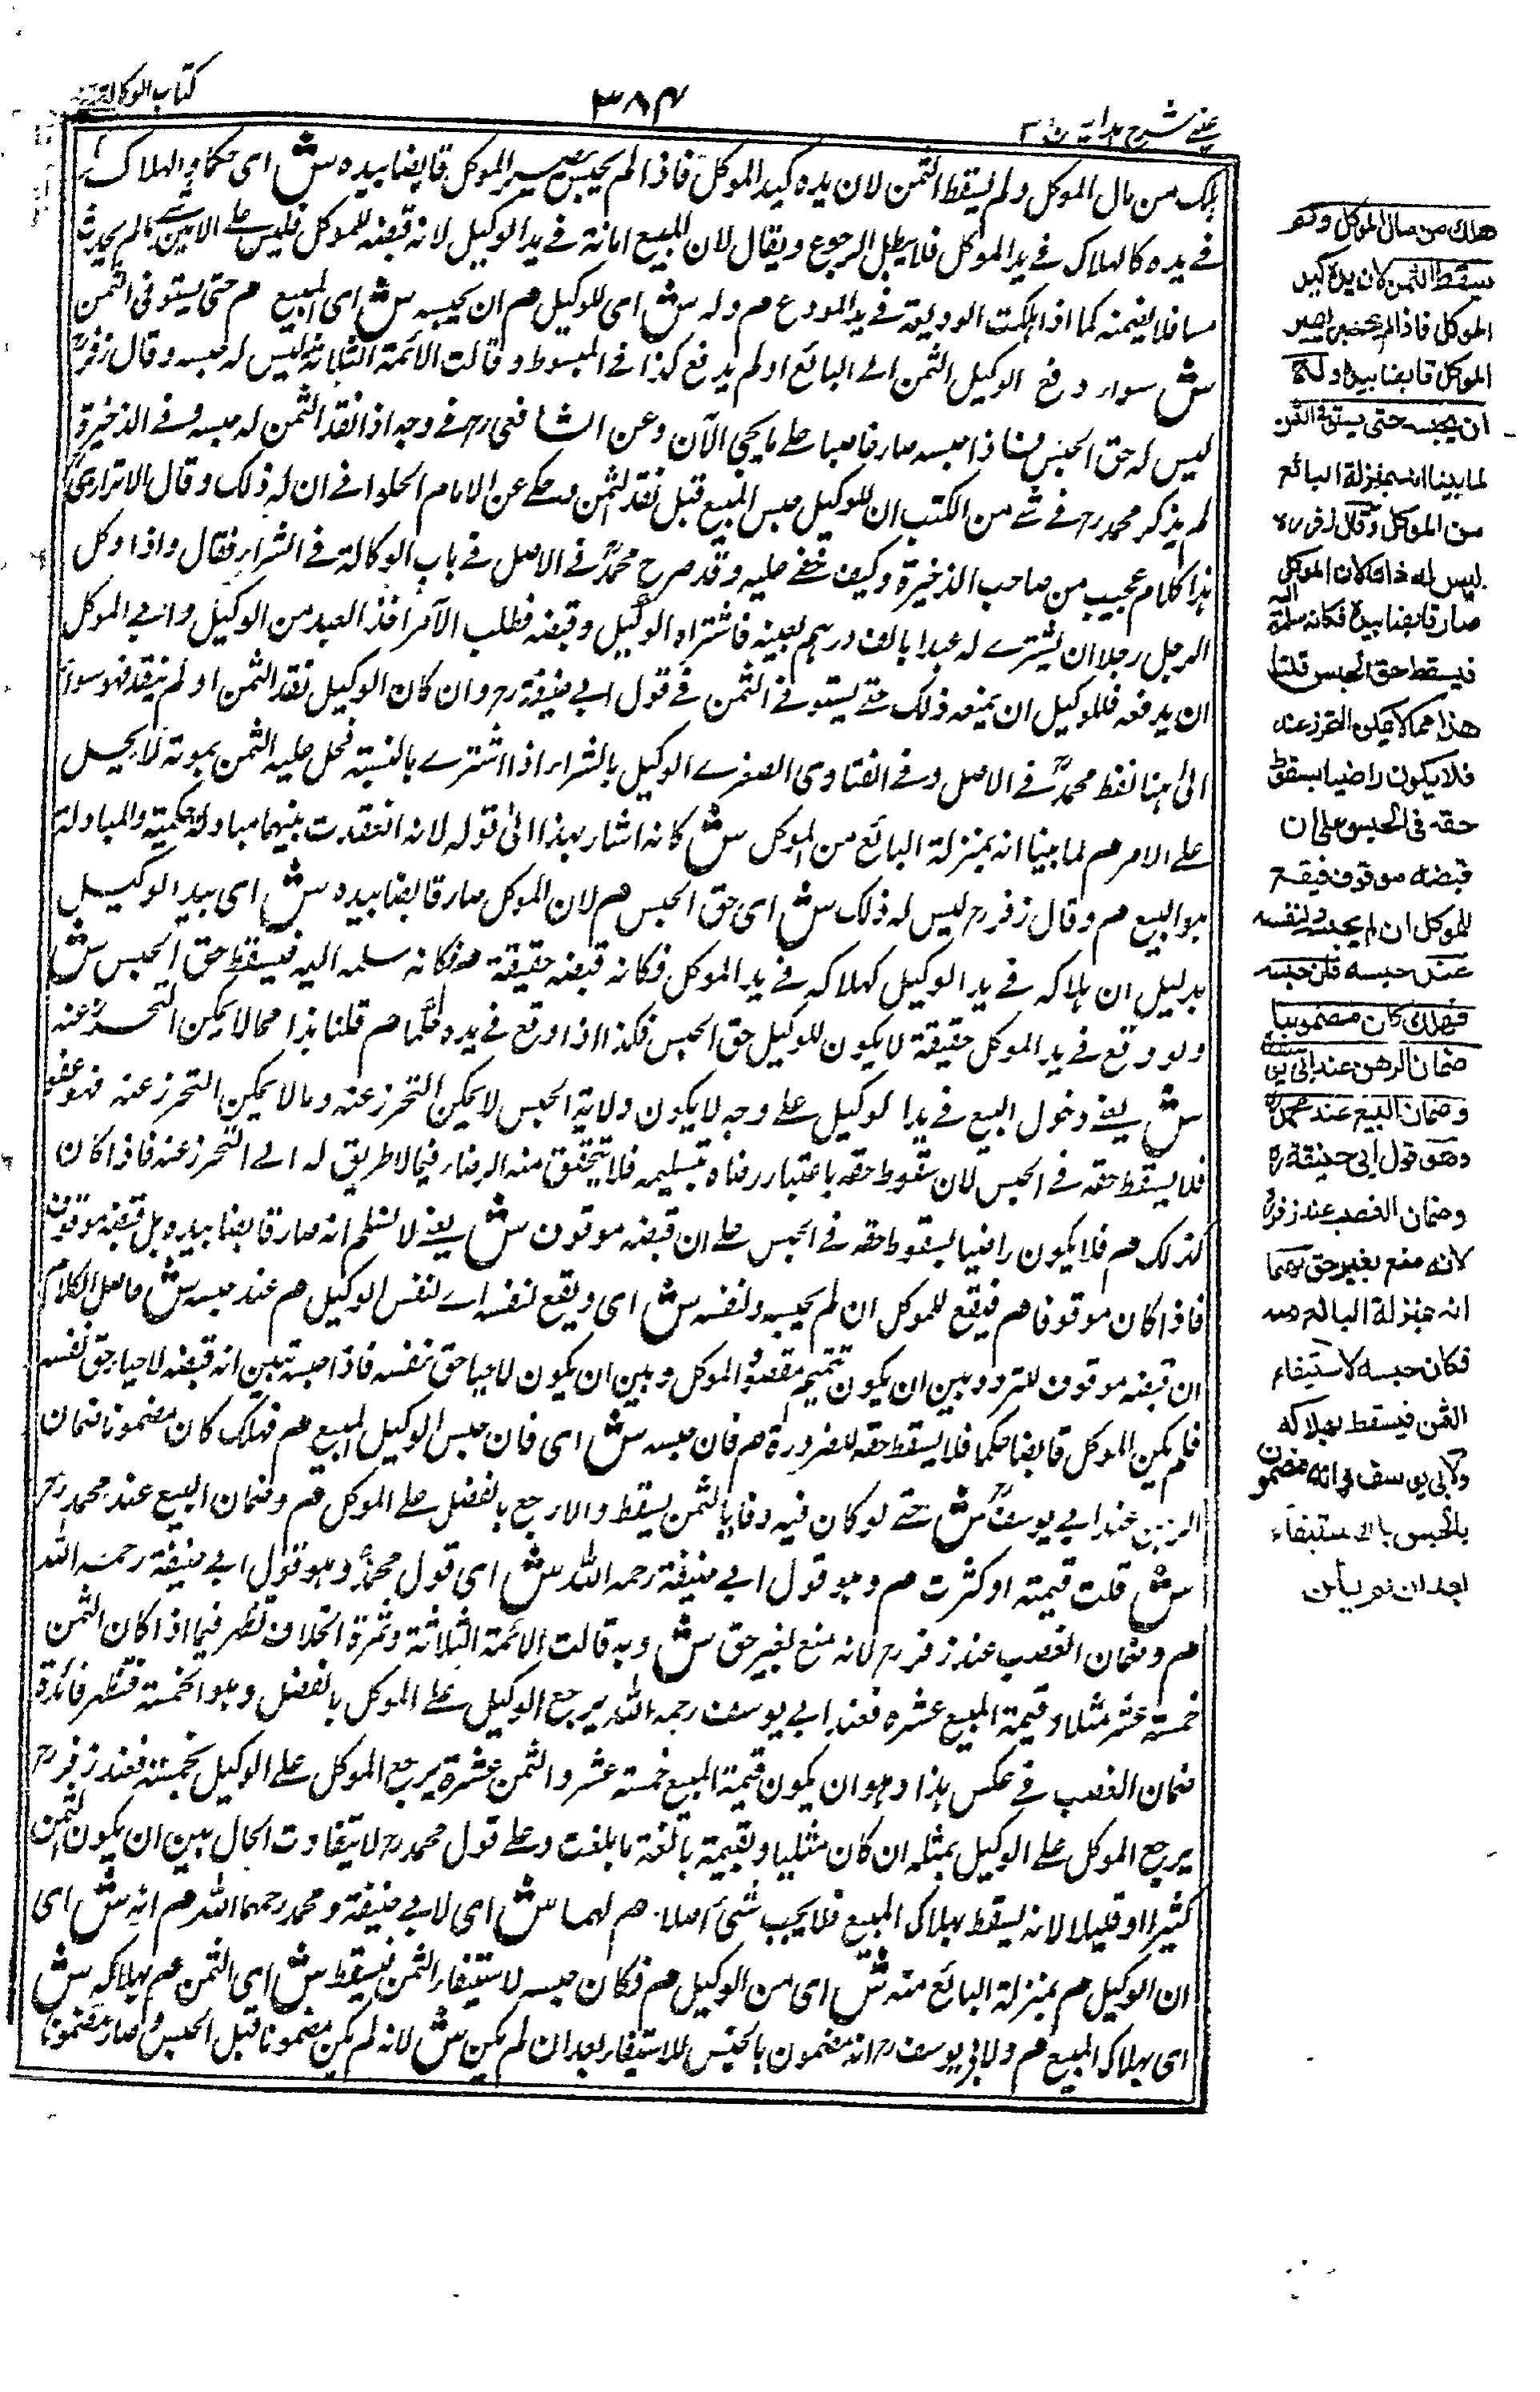 عینی شرح ہدایہ ج ۳
۳۸۴
کتاب الوکالة
ہلک من مال الموکل ولم یسقط الثمن لان یدہ کید الموکل فاذا لم یحبس یصیر الموکل قابضا بیدہ ش ای حکما والہلاک
فے یدہ کالہلاک فے ید الموکل فلا یبطل الرجوع ویقال لان المبیع امانة فے ید الوکیل لانہ قبضہ للموکل فلیس علے الامین شے مالم یحدث
سا فلا یضمنہ کما اذا ہلکت الودیعة فے ید المودع م ولہ ش ای للوکیل م ان یحبسہ ش ای المبیع م حتی یستوفی الثمن
ش سواء دفع الوکیل الثمن الے البائع او لم یدفع کذا فے المبسوط وقالت الائمة الثلاثة لیس لہ حبسہ وقال زفر
لیس لہ حق الحبس فاذا حبسہ صار غاصبا علے ما یجی الآن وعن الشافعی رح فے وجہ اذا نقد الثمن لہ حبسہ وفے الذخیرة
لم یذکر محمد رح فے شے من الکتب ان للوکیل حبس المبیع قبل نقد الثمن وحکے عن الامام الحلوانے ان لہ ذلک وقال الاتراری
ہذا کلام عجیب من صاحب الذخیرة وکیف خفے علیہ وقد صرح محمد فے الاصل فے باب الوکالة فے الشراء فقال واذا وکل
الرجل رجلا ان یشترے لہ عبدا بالف درہم بعینہ فاشتراہ الوکیل وقبضہ فطلب الآمر اخذ العبد من الوکیل وابے الموکل
ان یدفعہ فللوکیل ان یمنعہ ذلک حتے یستوفے الثمن فے قول ابے حنیفة رح وان کان الوکیل نقد الثمن او لم ینقد فہو سواء
الی ہنا لفظ محمد فے الاصل وفے الفتاوی الصغرے الوکیل بالشراء اذا اشترے بالنسیة فحل علیہ الثمن بموتہ لا یحل
علے الامر م لما بینا انہ بمنزلة البائع من الموکل ش کانہ اشار بہذا الی قولہ لانہ انعقدت بینہما مبادلة حکمیة والمبادلة
ہو البیع م وقال زفر رح لیس لہ ذلک ش ای حق الحبس م لان الموکل صار قابضا بیدہ ش ای بید الوکیل
بدلیل ان ہلاکہ فے ید الوکیل کہلاکہ فے ید الموکل فکانہ قبضہ حقیقة م فکانہ سلمہ الیہ فیسقط حق الحبس ش
ولو وقع فے ید الموکل حقیقة لا یکون للوکیل حق الحبس فکذا اذا وقع فے یدہ حکما م قلنا ہذا مما لا یمکن التحرز عنہ
ش یعنے دخول المبیع فے ید الوکیل علے وجہ لا یکون ولایة الحبس لا یمکن التحرز عنہ وما لا یمکن التحرز عنہ فہو عفو
فلا یسقط حقہ فے الحبس لان سقوط حقہ باعتبار رضاہ بتسلیمہ فلا یتحقق منہ الرضاء فیما لا طریق لہ الے التحرز عنہ فاذا کان
کذلک م فلا یکون راضیا بسقوط حقہ فے الحبس علے ان قبضہ موقوف ش یعنے لا نسلم انہ صار قابضا بیدہ بل قبضہ موقوف
فاذا کان موقوفا م فیقع للموکل ان لم یحبسہ ولنفسہ ش ای ویقع لنفسہ اے لنفس الوکیل م عند حبسہ ش حاصل الکلام
ان قبضہ موقوف للتردد بین ان یکون تتمیم مقصود الموکل وبین ان یکون لاحیاء حق نفسہ فاذا حبسہ تبین انہ قبضہ لاحیاء حق نفسہ
فلم یکن الموکل قابضا حکما فلا یسقط حقہ للضرورة م فان حبسہ ش ای فان حبس الوکیل المبیع م فہلک کان مضمونا ضمان
الرہن عند ابے یوسف ش حتے لو کان فیہ وفاء بالثمن یسقط والا رجع بالفضل علے الموکل م وضمان البیع عند محمد رح
ش قلت قیمتہ او کثرت م وہو قول ابے حنیفة رحمہ اللہ ش ای قول محمد وہو قول ابے حنیفة رحمہ اللہ
م وضمان الغصب عند زفر رح لانہ منع بغیر حق ش وبہ قالت الائمة الثلاثة وثمرة الخلاف تظہر فیما اذا کان الثمن
خمستہ عشر مثلا وقیمة المبیع عشرہ فعند ابے یوسف رحمہ اللہ یرجع الوکیل علے الموکل بالفضل وہو الخمستہ فتظہر فائدة
ضمان الغصب فے عکس ہذا وہو ان یکون قیمة المبیع خمستہ عشر والثمن عشرة یرجع الموکل علے الوکیل بخمستہ فعند زفر رح
یرجع الموکل علے الوکیل بمثلہ ان کان مثلیا وبقیمتہ بالغة ما بلغت وعلے قول محمد رح لا یتفاوت الحال بین ان یکون الثمن
کثیرا او قلیلا لانہ یسقط بہلاک المبیع فلا یجب شئ اصلا م لہما ش ای لابے حنیفة ومحمد رحمہما اللہ م انہ ش ای
ان الوکیل م بمنزلة البائع منہ ش ای من الوکیل م فکان حبسہ لاستیفاء الثمن فیسقط ش ای الثمن م بہلاکہ ش
ای بہلاک المبیع م ولابی یوسف رح انہ مضمون بالحبس للاستیفاء بعد ان لم یکن ش لانہ لم یکن مضمونا قبل الحبس وصار مضمونا
هلك من مال الموكل ولم
يسقط الثمن لان يده كيد
الموكل فاذا لم يحبس يصير
الموكل قابضا بيده وله
ان يحبسه حتى يستوفي الثمن
لما بينا انه بمنزلة البائع
من الموكل وقال زفر ره
ليس له ذلك لان الموكل
صار قابضا بيده فكانه سلمه اليه
فيسقط حق الحبس قلنا
هذا مما لا يمكن التحرز عنه
فلا يكون راضيا بسقوط
حقه في الحبس على ان
قبضه موقوف فيقع
للموكل ان لم يحبسه ولنفسه
عند حبسه فان حبسه
فهلك كان مضمونا
ضمان الرهن عند ابي يوسف
وضمان البيع عند محمد ره
وهو قول ابي حنيفة ره
وضمان الغصب عند زفر ره
لانه منع بغير حق لهما
انه بمنزلة البائع منه
فكان حبسه لاستيفاء
الثمن فيسقط بهلاكه
ولابي يوسف ره انه مضمون
بالحبس للاستيفاء
بعد ان لم يكن